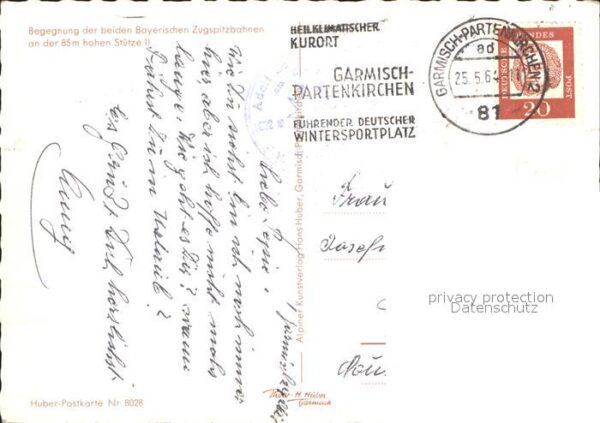 Begegnung der beiden Bayerischen Zugspitzbahnen
an der 85m hohen Stütze II
HEILKLIMATISCHER
KURORT
GARMISCH-
PARTENKIRCHEN
FÜHRENDER DEUTSCHER
WINTERSPORTPLATZ
GARMISCH-PARTENKIRCHEN 2
ad
25.5.6
81
DEUTSCHE BUNDESPOST
20
Wie Du siehst bin ich noch immer
hier aber ich hoffe nicht mehr
lange. Wie geht es Dir? Wann
fährst Du in Urlaub?
Es grüßt Dich herzlichst
Alpiner Kunstverlag Hans Huber, Garmisch-Partenkirchen
Frau
Josef
privacy protection
Datenschutz
Huber-Postkarte Nr. 8028
Photo-H. Huber
Garmisch